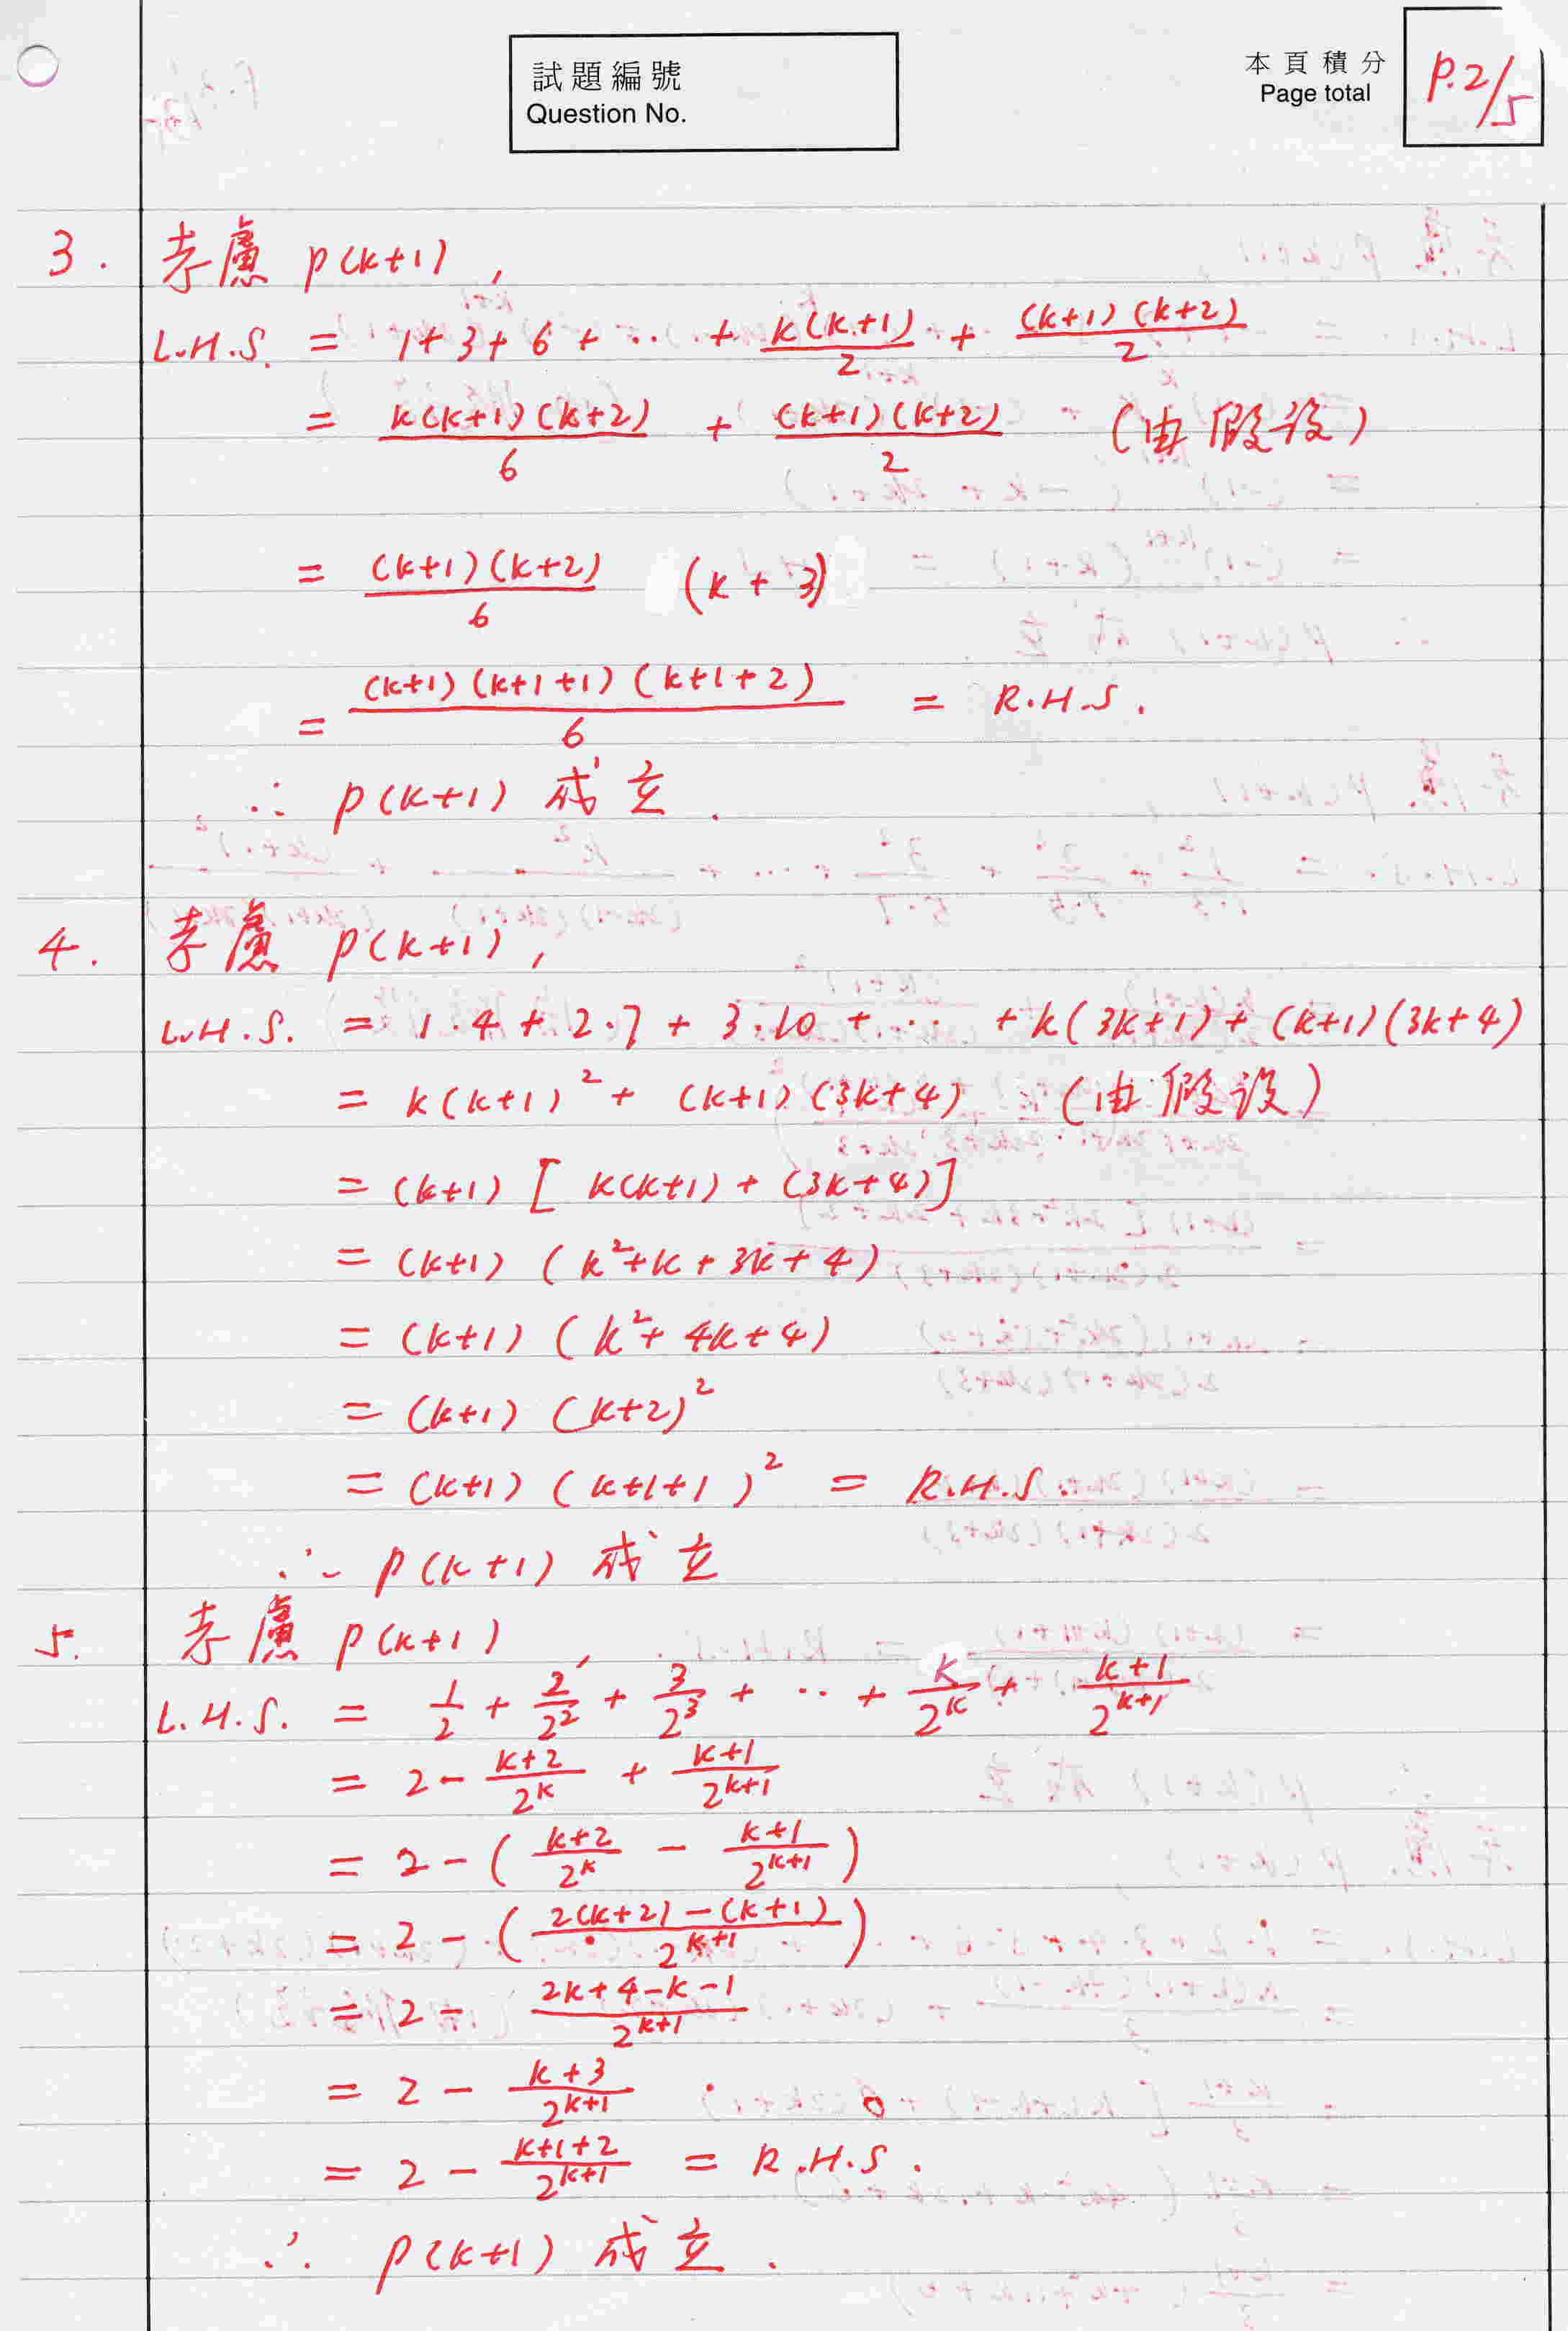 試題編號
Question No.
本頁積分
Page total
P.2/5
3. 考慮 P(k+1),
L.H.S. = 1+3+6+ ... + k(k+1)/2 + (k+1)(k+2)/2
= k(k+1)(k+2)/6 + (k+1)(k+2)/2 (由假設)
= (k+1)(k+2)/6 (k+3)
= (k+1)(k+1+1)(k+1+2)/6 = R.H.S.
∴ P(k+1) 成立.
4. 考慮 P(k+1),
L.H.S. = 1·4 + 2·7 + 3·10 + ... + k(3k+1) + (k+1)(3k+4)
= k(k+1)² + (k+1)(3k+4) (由假設)
= (k+1)[k(k+1) + (3k+4)]
= (k+1)(k²+k+3k+4)
= (k+1)(k²+4k+4)
= (k+1)(k+2)²
= (k+1)(k+1+1)² = R.H.S.
∴ P(k+1) 成立
5. 考慮 P(k+1),
L.H.S. = 1/2 + 2/2² + 3/2³ + ... + k/2^k + (k+1)/2^(k+1)
= 2 - (k+2)/2^k + (k+1)/2^(k+1)
= 2 - ( (k+2)/2^k - (k+1)/2^(k+1) )
= 2 - ( (2(k+2)-(k+1))/2^(k+1) )
= 2 - (2k+4-k-1)/2^(k+1)
= 2 - (k+3)/2^(k+1)
= 2 - (k+1+2)/2^(k+1) = R.H.S.
∴ P(k+1) 成立.